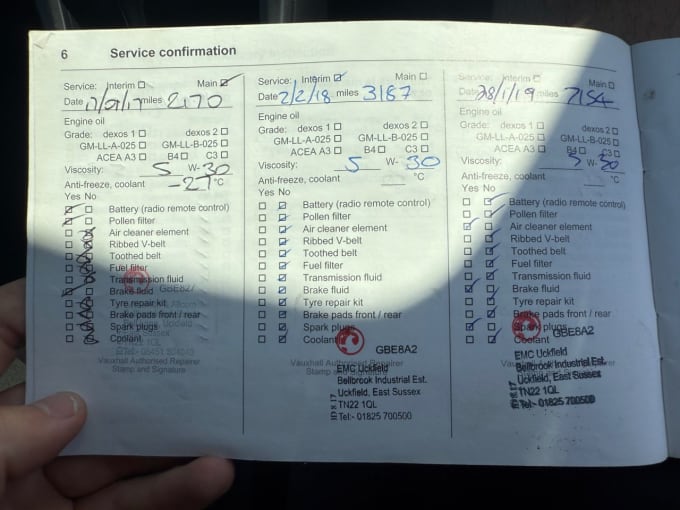 6 Service confirmation
Service: Interim Main
Date miles 2170
Engine oil
Grade: dexos 1 dexos 2
GM-LL-A-025 GM-LL-B-025
ACEA A3 B4 C3
Viscosity: 5 W-30
Anti-freeze, coolant -27 °C
Yes No
Battery (radio remote control)
Pollen filter
Air cleaner element
Ribbed V-belt
Toothed belt
Fuel filter
Transmission fluid
Brake fluid
Tyre repair kit
Brake pads front / rear
Spark plugs
Coolant
Vauxhall Authorised Repairer
Stamp and Signature
Service: Interim Main
Date 2/2/18 miles 3187
Engine oil
Grade: dexos 1 dexos 2
GM-LL-A-025 GM-LL-B-025
ACEA A3 B4 C3
Viscosity: 5 W-30
Anti-freeze, coolant °C
Yes No
Battery (radio remote control)
Pollen filter
Air cleaner element
Ribbed V-belt
Toothed belt
Fuel filter
Transmission fluid
Brake fluid
Tyre repair kit
Brake pads front / rear
Spark plugs
Coolant
GBE8A2
EMC Uckfield
Bellbrook Industrial Est.
Uckfield, East Sussex
TN22 1QL
Tel:- 01825 700500
Service: Interim Main
Date 28/1/19 miles 7154
Engine oil
Grade: dexos 1 dexos 2
GM-LL-A-025 GM-LL-B-025
ACEA A3 B4 C3
Viscosity: 5 W-30
Anti-freeze, coolant °C
Yes No
Battery (radio remote control)
Pollen filter
Air cleaner element
Ribbed V-belt
Toothed belt
Fuel filter
Transmission fluid
Brake fluid
Tyre repair kit
Brake pads front / rear
Spark plugs
Coolant
GBE8A2
EMC Uckfield
Bellbrook Industrial Est.
Uckfield, East Sussex
TN22 1QL
Tel:- 01825 700500